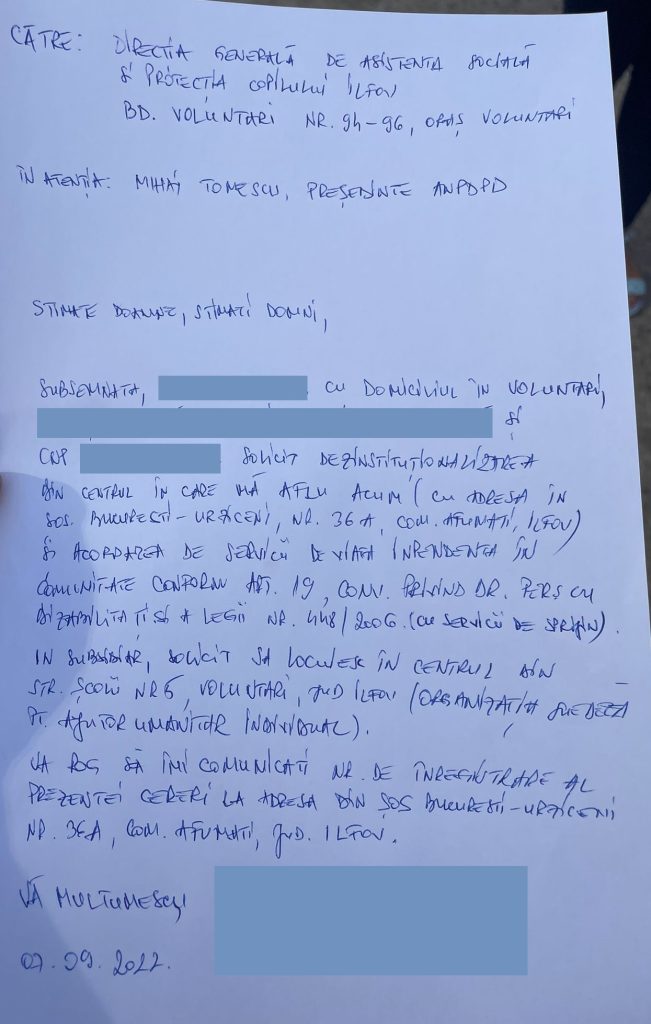 CĂTRE: DIRECȚIA GENERALĂ DE ASISTENȚA SOCIALĂ
ȘI PROTECȚIA COPILULUI ILFOV
BD. VOLUNTARI NR. 94-96, ORAȘ VOLUNTARI
ÎN ATENȚIA: MIHAI TOMESCU, PREȘEDINTE ANPDPD
STIMATE DOAMNE, STIMAȚI DOMNI,
SUBSEMNATA, CU DOMICILIUL ÎN VOLUNTARI,
ȘI
CNP SOLICIT DEZINSTITUȚIONALIZAREA
DIN CENTRUL ÎN CARE MĂ AFLU ACUM (CU ADRESA ÎN
ȘOS. BUCUREȘTI-URZICENI, NR. 36A, COM. AFUMAȚI, ILFOV)
ȘI ACORDAREA DE SERVICII DE VIAȚA INPENDENTA ÎN
COMUNITATE CONFORM ART. 19, CONV. PRIVIND DR. PERS CU
DIZABILITATI SI A LEGII NR. 448/2006. (CU SERVICII DE SPRIJIN).
IN SUBSIDIAR, SOLICIT SĂ LOCUIESC ÎN CENTRUL DIN
STR. ȘCOLII NR 5, VOLUNTARI, JUD ILFOV (ORGANIZAȚIA SUEDEZĂ
PT. AJUTOR UMANITAR INDIVIDUAL).
VĂ ROG SĂ ÎMI COMUNICAȚI NR. DE ÎNREGISTRARE AL
PREZENTEI CERERI LA ADRESA DIN ȘOS BUCUREȘTI-URZICENI
NR. 36A, COM. AFUMAȚI, JUD. ILFOV.
VĂ MULȚUMESC,
07.09.2022.